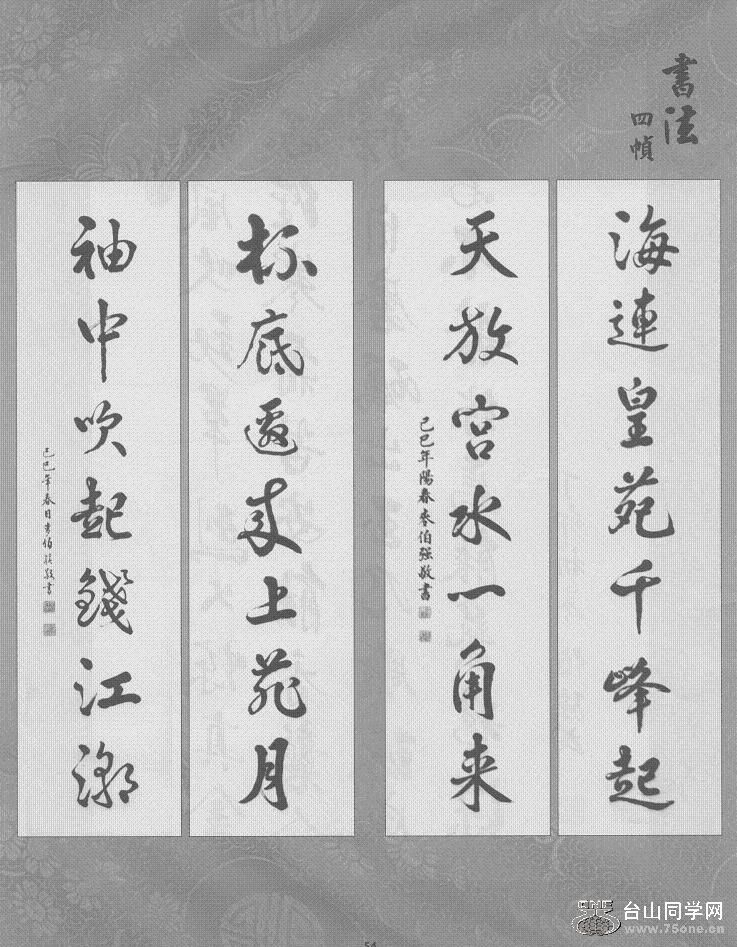 書法
四幀
海連皇苑千峰起
天放宮水一角来
己巳年陽春伯强敬書
杯底邀上苑月
袖中吹起錢江潮
己巳年春日伯强敬書
54
台山同学网
www.75one.cn